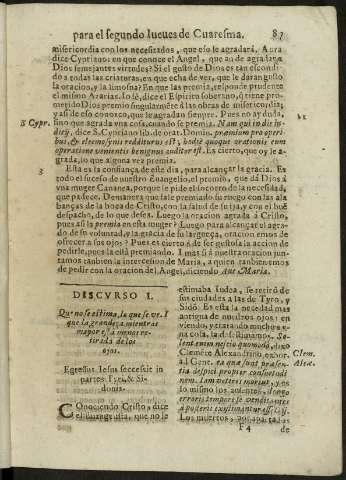 para el segundo Iueues de Cuaresma. 87
misericordia con los necessitados, que esso le agradarà. Aora
dice Cypriano: en que conoce el Angel, que an de agradar a
Dios semejantes virtudes? Si el gusto de Dios es tan escondi-
do a todas las criaturas, en que echa de ver, que le daran gusto
la oracion, y la limosna? En que las premia, responde prudente
el mismo Azarias. Io sè, dice el Espiritu soberano, q̃ tiene pro-
metido Dios premio singularmẽte á las obras de misericordia;
y assi de eso conozco, que le agradan siempre. Pues no ay du-
S Cypr. sino que agrada una cosa, cuando se premia. Nam qui in die iu-
dicij, dice S. Cypriano lib. de orat. Domin. præmium pro operi-
bus, & eleemosynis redditurus est; hodie quoque orationis cum
operatione venientis benignus auditor est. Es cierto, que oy le a-
grada, lo que alguna vez premia.
3 Esta es la confianza de este dia, para alcanzar la gracia. Es
todo el suceso de nuestro Euangelio, el premio, que dà Dios à
una muger Cananea, porque le pide el socorro de la necesidad,
que padece. De manera que sale premiado su ruego con las ala-
banças de la boca de Cristo, con la salud de su ija, y con el buẽ
despacho, de lo que desea. Luego la oracion agrada à Cristo,
pues assi la premia en esta muger? Luego para alcançar el agra-
do de su voluntad, y la gracia de su largueça, oracion emos de
ofrecer a sus ojos? Pues es cierto à de ser gustosa la accion de
pedirle, pues la està premiando. I mas si à nuestra oracion jun-
tamos tanbien la intercesion de Maria, a quien tanbien emos
de pedir con la oracion del Angel, diciendo Aue Maria.
DISCVRSO I.
Que no se estima, lo que se ve. I
que la grandeça mientras
mayor està menos re-
tirada de los
ojos.
Egressus Iesus secessit in
partes Tyri, & Si-
donis.
COnociendo Cristo, dice
el Euangelista, que no le
estimaba Iudea, se retirò de
sus ciudades a las de Tyro, y
Sidõ. Es esta la necedad mas
antigua de nuestros ojos: en
viendo, y tratando mucho u-
na cosa, la desestimamos. So-
lent enim nescio quomodo, dixo
Clemẽte Alexandrino, exhor. Clem.
ad Gent. ea quæ sunt præsen- Alex.
tia despici propter consuetudi-
nem.
lo mismo los autentes,
erroris tempori se vendicantes
a posteris existimantur
Los muertos,
F 4 de